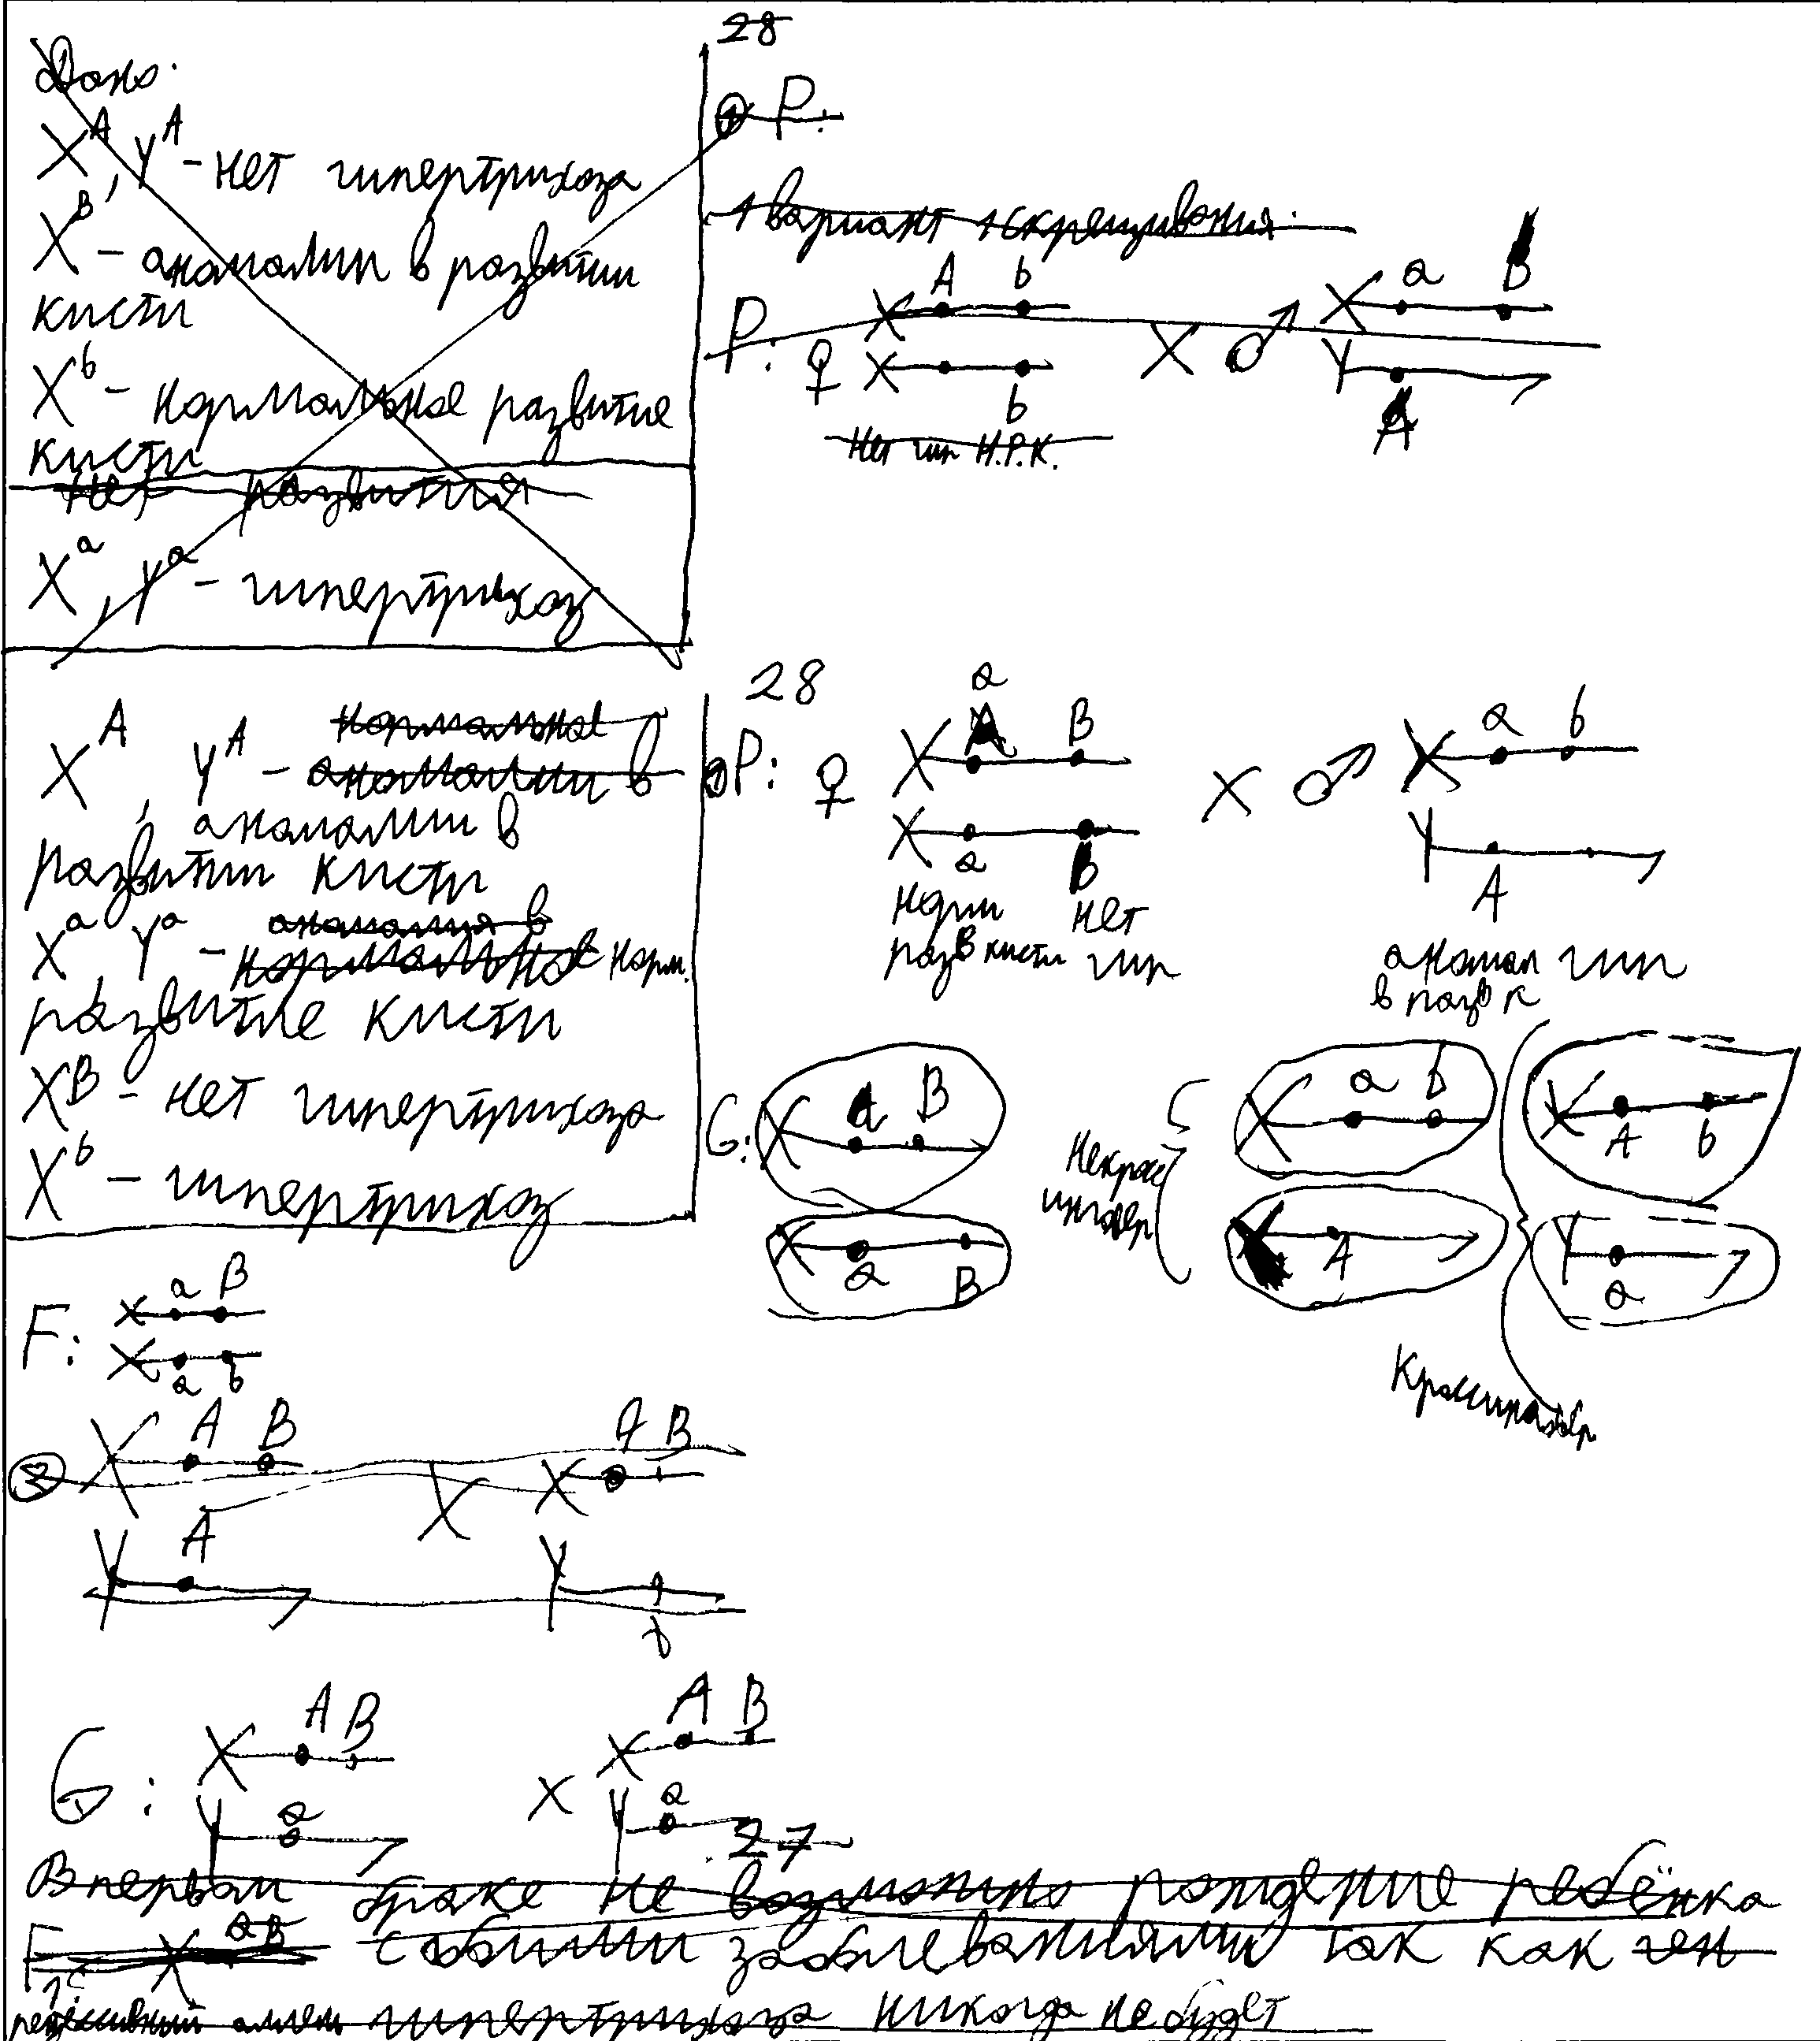 28
Дано:
X^A, Y^A - нет гипертрихоза
X^B - аномалии в развитии
кисти
X^b - нормальное развитие
кисти
нет развития
X^a, Y^a - гипертрихоз
① P:
1 вариант скрещивания:
A b a B
P: ♀ X X X ♂ X Y
b A
Нет гип Н.Р.К.
28
X^A, Y^A - нормальное
аномалии в
аномалии в
развитии кисти
X^a, Y^a - аномалия в
нормальное норм.
развитие кисти
X^B - нет гипертрихоза
X^b - гипертрихоз
a
P: ♀ X A B X ♂ X a b
X a B Y A
норм нет
разв кисти гип
аномал гип
в разв к
G: X a B X a b X A b
X a B A Y a
Кроссинговер
F: X a B
X a b
② X A B X X B
Y A Y
G: X A B X X A B
Y a Y a
27
В первом браке не возможно рождение ребёнка
F X aB с обоими заболеваниями так как ген
рецессивный аллель гипертрихоза никогда не будет